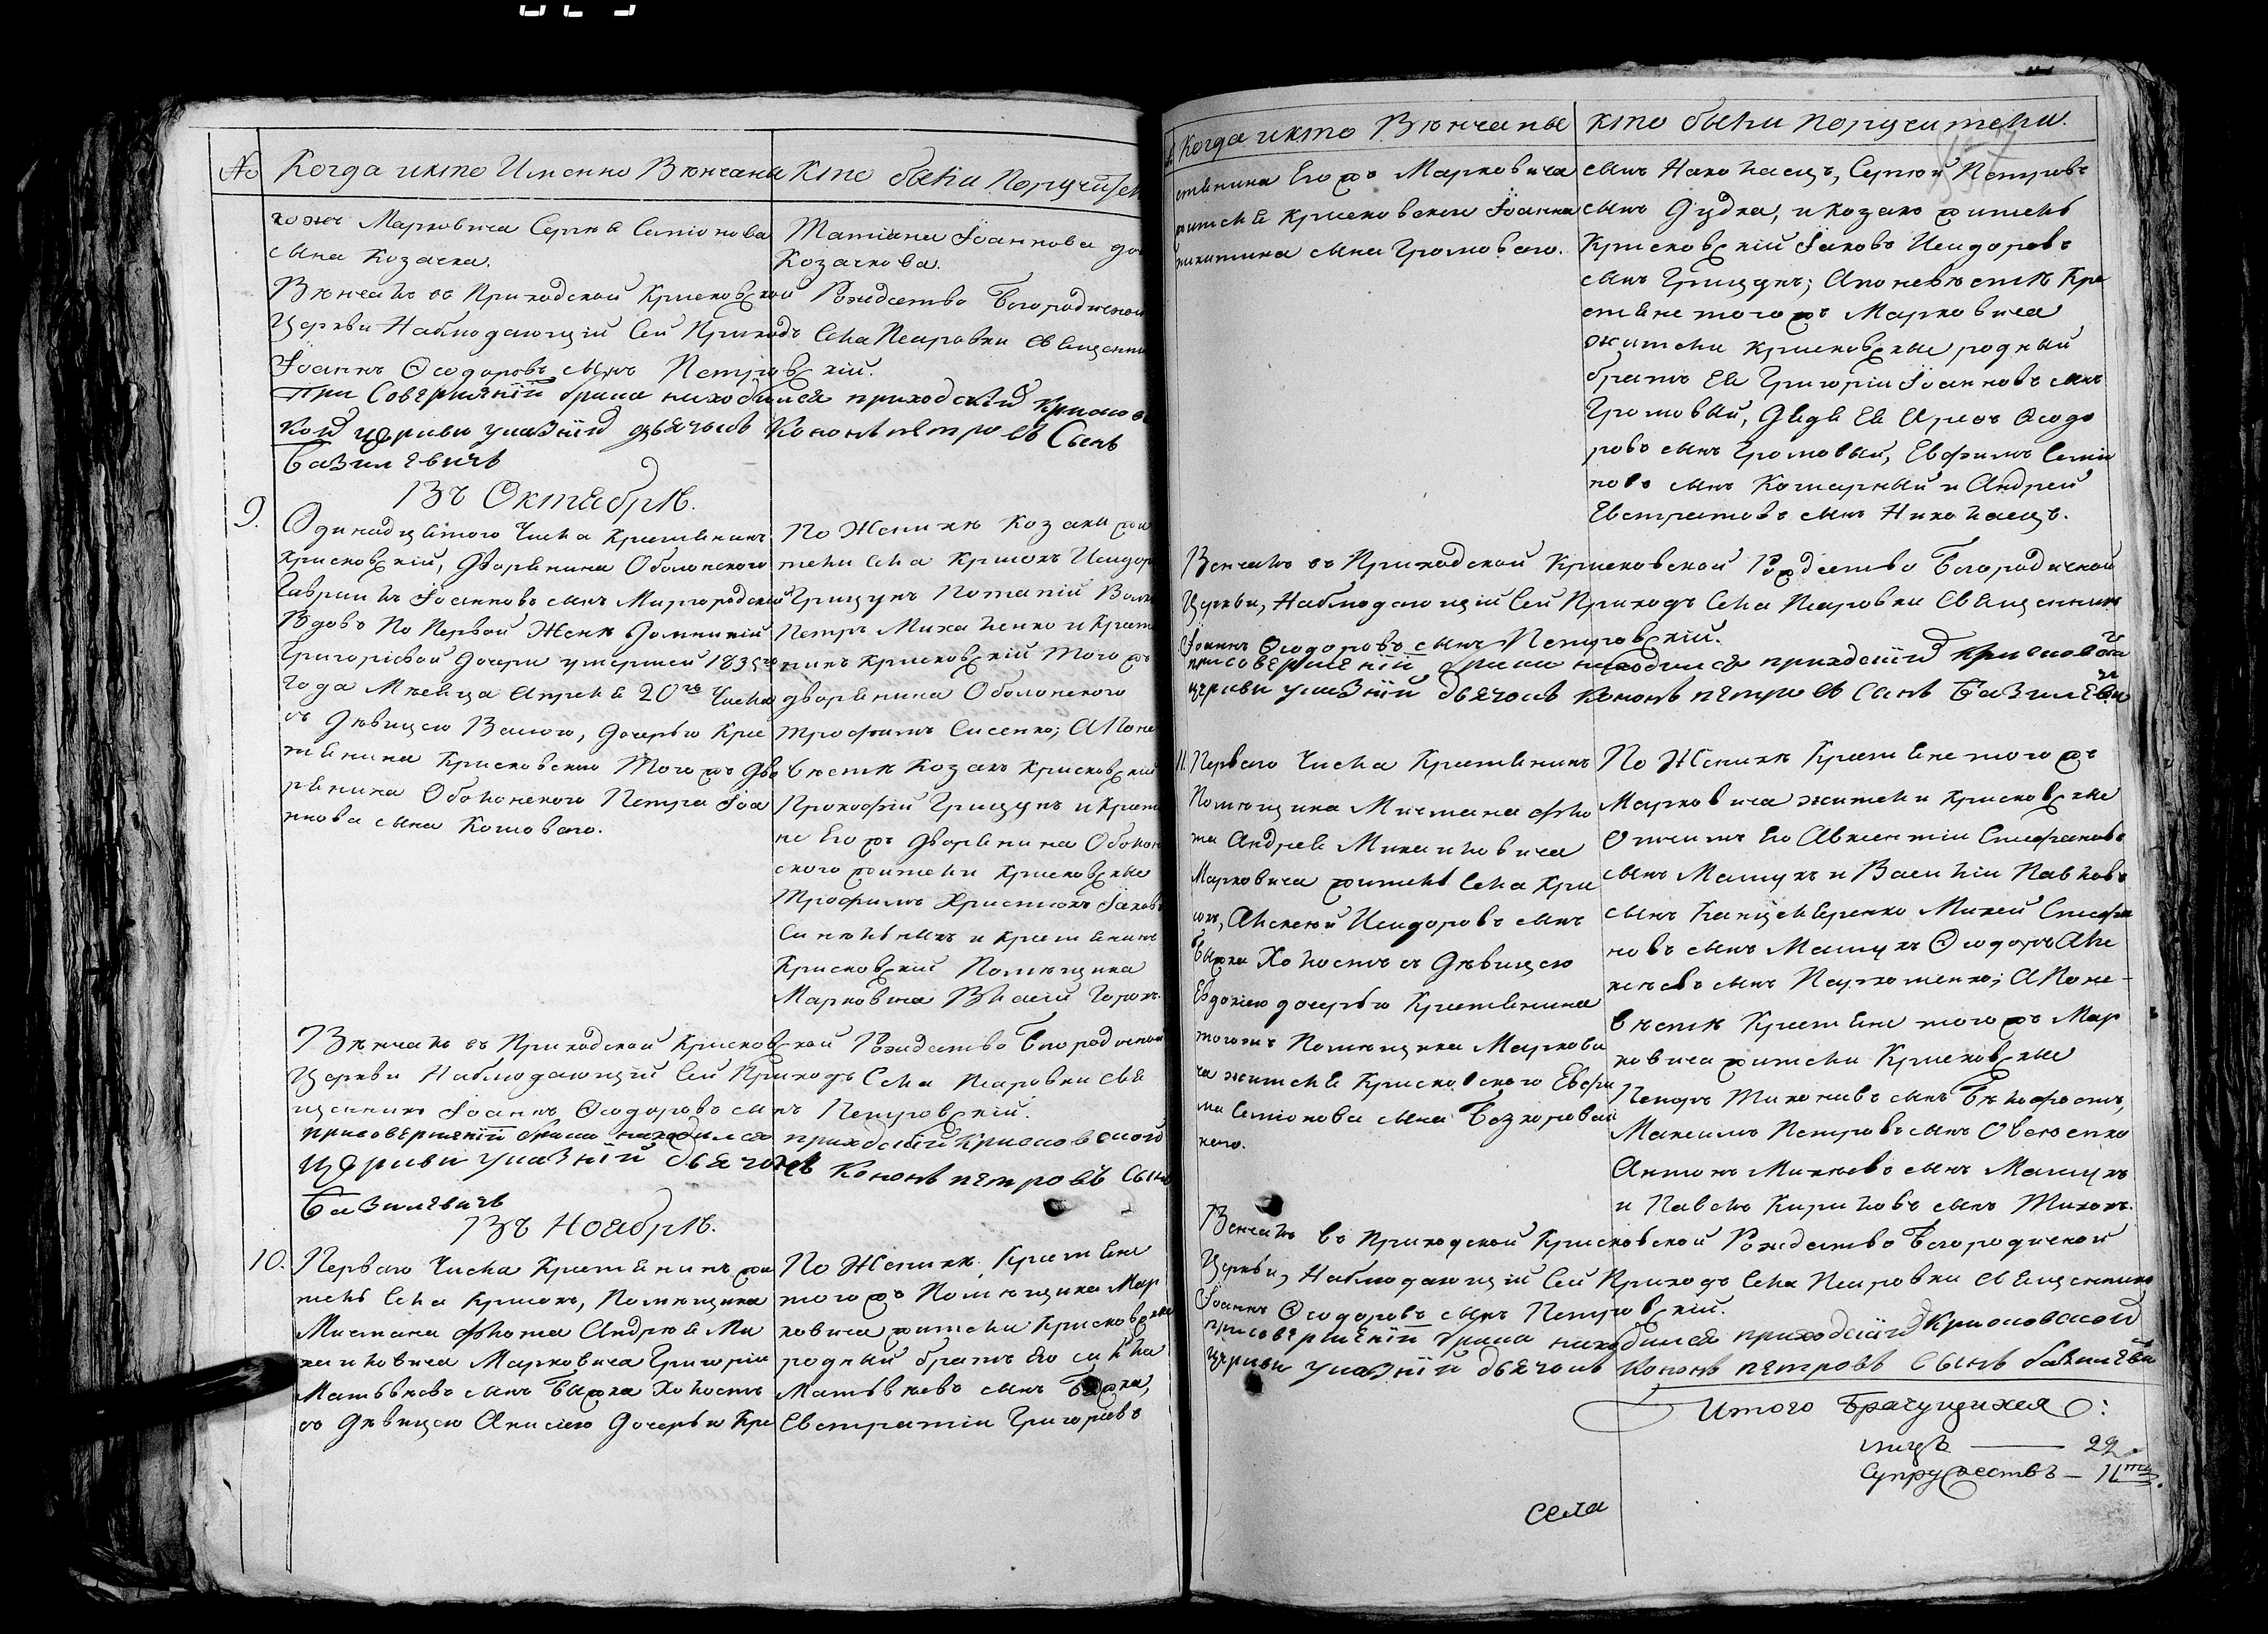 № Когда и кто Именно Венчаны
Кто были Поручители
кожъ Марковича Сергѣя Семіонова
сына Козачка.
Татіана Іоаннова доч
Козачкова.
Вѣнчалъ въ Приходской Крисковской Рождество Богородичной
Церкви Наблюдающій Сей Приходъ Села Псаровки Священни
Іоаннъ Ѳеодоровъ сынъ Петровскій.
При Совершеніи брака находился приходскій Крисков
кой церкви указній дьячокъ Кононъ петровъ Сынъ
Базилевичъ
Въ Октябрѣ.
9.
Одинадцятого Числа Крестянинъ
Крисковскій, Дворянина Оболонского
Гавріилъ Іоанновъ сынъ Миргородскій
Вдовъ По Первой Женѣ Домникіи
Григоріевой дочери умершей 1835го
года Мѣсяца Апреля 20го Числа
съ Дѣвицею Вассою, Дочерью Кре
стянина Крисковского Того жъ Дво
рянина Оболонского Петра Іоа
ннова сына Котового.
По Женихѣ Козаки жи
тели Села Крисокъ Исидор
Грицунъ Потапій Волк
Петръ Михаленко и Крест
нинъ Крисковскій Того жъ
дворянина Оболонского
Трофимъ Сисенко; А По не
вѣстѣ Козакъ Крисковскій
Прокофій Грицунъ и Крестя
не Его жъ Дворянина Оболон
ского жители Крисковскіе
Трофимъ Христюкъ Іаковъ
Синѣльникъ и Крестянинъ
Крисковскій Помѣщика
Марковича Власій Горохъ.
Вѣнчалъ въ Приходской Крисковской Рождество Богородичной
Церкви Наблюдающій Сей Приходъ Села Псаровки Свя
щенникъ Іоаннъ Ѳеодоровъ сынъ Петровскій.
при совершеніи брака находился приходскій Крисковской
Церкви указній дьячокъ Кононъ петровъ Сынъ
Базилевичъ
Въ Ноябрѣ.
10.
Первого Числа Крестянинъ жи
тель Села Крисокъ, Помѣщика
Мичмана флота Андрѣя Ми
хаиловича Марковича Григорій
Матвѣевъ сынъ Бажка Холостъ
съ Дѣвицею Анисіею Дочерью Кре
По Женихѣ Крестяне
того жъ Помѣщика Мар
ковича жители Крисковскіе
родный братъ Его
Матвѣевъ сынъ Бажка,
Евстратій Григоріевъ
Когда и кто Вѣнчаны
Кто были Поручители.
стянина Его жъ Марковича
жителя Крисковского Іоанна
Никитина сына Громового.
сынъ Николаецъ, Сергѣй Петровъ
сынъ Дудка, и Козакъ житель
Крисковскій Іаковъ Исидоровъ
сынъ Грицунъ; А по невѣстѣ Кре
стяне того жъ Марковича
жители Крисковскіе родный
братъ Ея Григорій Іоанновъ сынъ
Громовый, Дядя Ея Ѳеодо
ровъ сынъ Громовый, Евфимъ Семіо
новъ сынъ Котарный и Андрей
Евстратовъ сынъ Николаецъ.
Венчалъ въ Приходской Крисковской Рождество Богородичной
Церкви, Наблюдающій Сей Приходъ Села Псаровки Священникъ
Іоаннъ Ѳеодоровъ сынъ Петровскій.
при совершеніи брака находился приходскій Крисковской
церкви указній дьячокъ Кононъ петровъ Сынъ Базилеви
11.
Первого Числа Крестянинъ
Помѣщика Мичмана фло
та Андрея Михаиловича
Марковича житель Села Кри
сокъ, Алексѣй Исидоровъ сынъ
Бажка Холостъ съ Дѣвицею
Евдокіею дочерью Крестянина
тогожъ Помѣщика Маркови
ча жителя Крисковского Евфи
ма Семіонова сына Безкоровай
ного.
По Женихѣ Крестяне того жъ
Марковича жители Крисковскіе
Отчимъ Его Авксентій Стефановъ
сынъ Мащукъ и Василій Павловъ
сынъ Канцеляренко Михей Стефа
новъ сынъ Мащукъ Ѳеодоръ Але
ксѣевъ сынъ Пархоменко; А По не-
вѣстѣ Крестяне того жъ Мар
ковича жители Крисковскіе
Петръ Тихоновъ сынъ Бѣлофостъ,
Максимъ Петровъ сынъ Овсѣенко
Антонъ Михѣевъ сынъ Мащукъ
и Павелъ Кириловъ сынъ Тихохъ.
Венчалъ въ Приходской Крисковской Рождество Богородичной
Церкви, Наблюдающій Сей Приходъ Села Псаровки Священникъ
Іоаннъ Ѳеодоровъ сынъ Петровскій.
при совершеніи брака находился приходскій Крисковской
Церкви указній дьячокъ Кононъ петровъ Сынъ базилеви
Итого Брачущихся:
лицъ — 22.
Супружествъ — 11ть.
Села